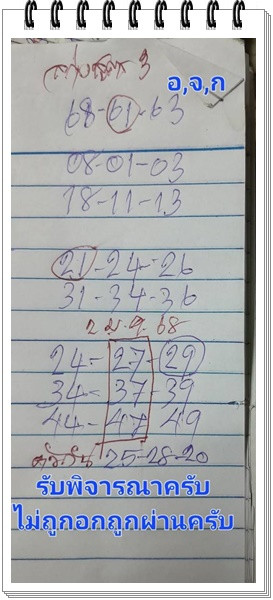 3
อ,จ,ก
68-61-63
08-01-03
18-11-13
21-24-26
31-34-36
2 ม.ย. 68
24-27-29
34-37-39
44-47 49
25-28-20
รับพิจารณาครับ
ไม่ถูกอกถูกผ่านครับ